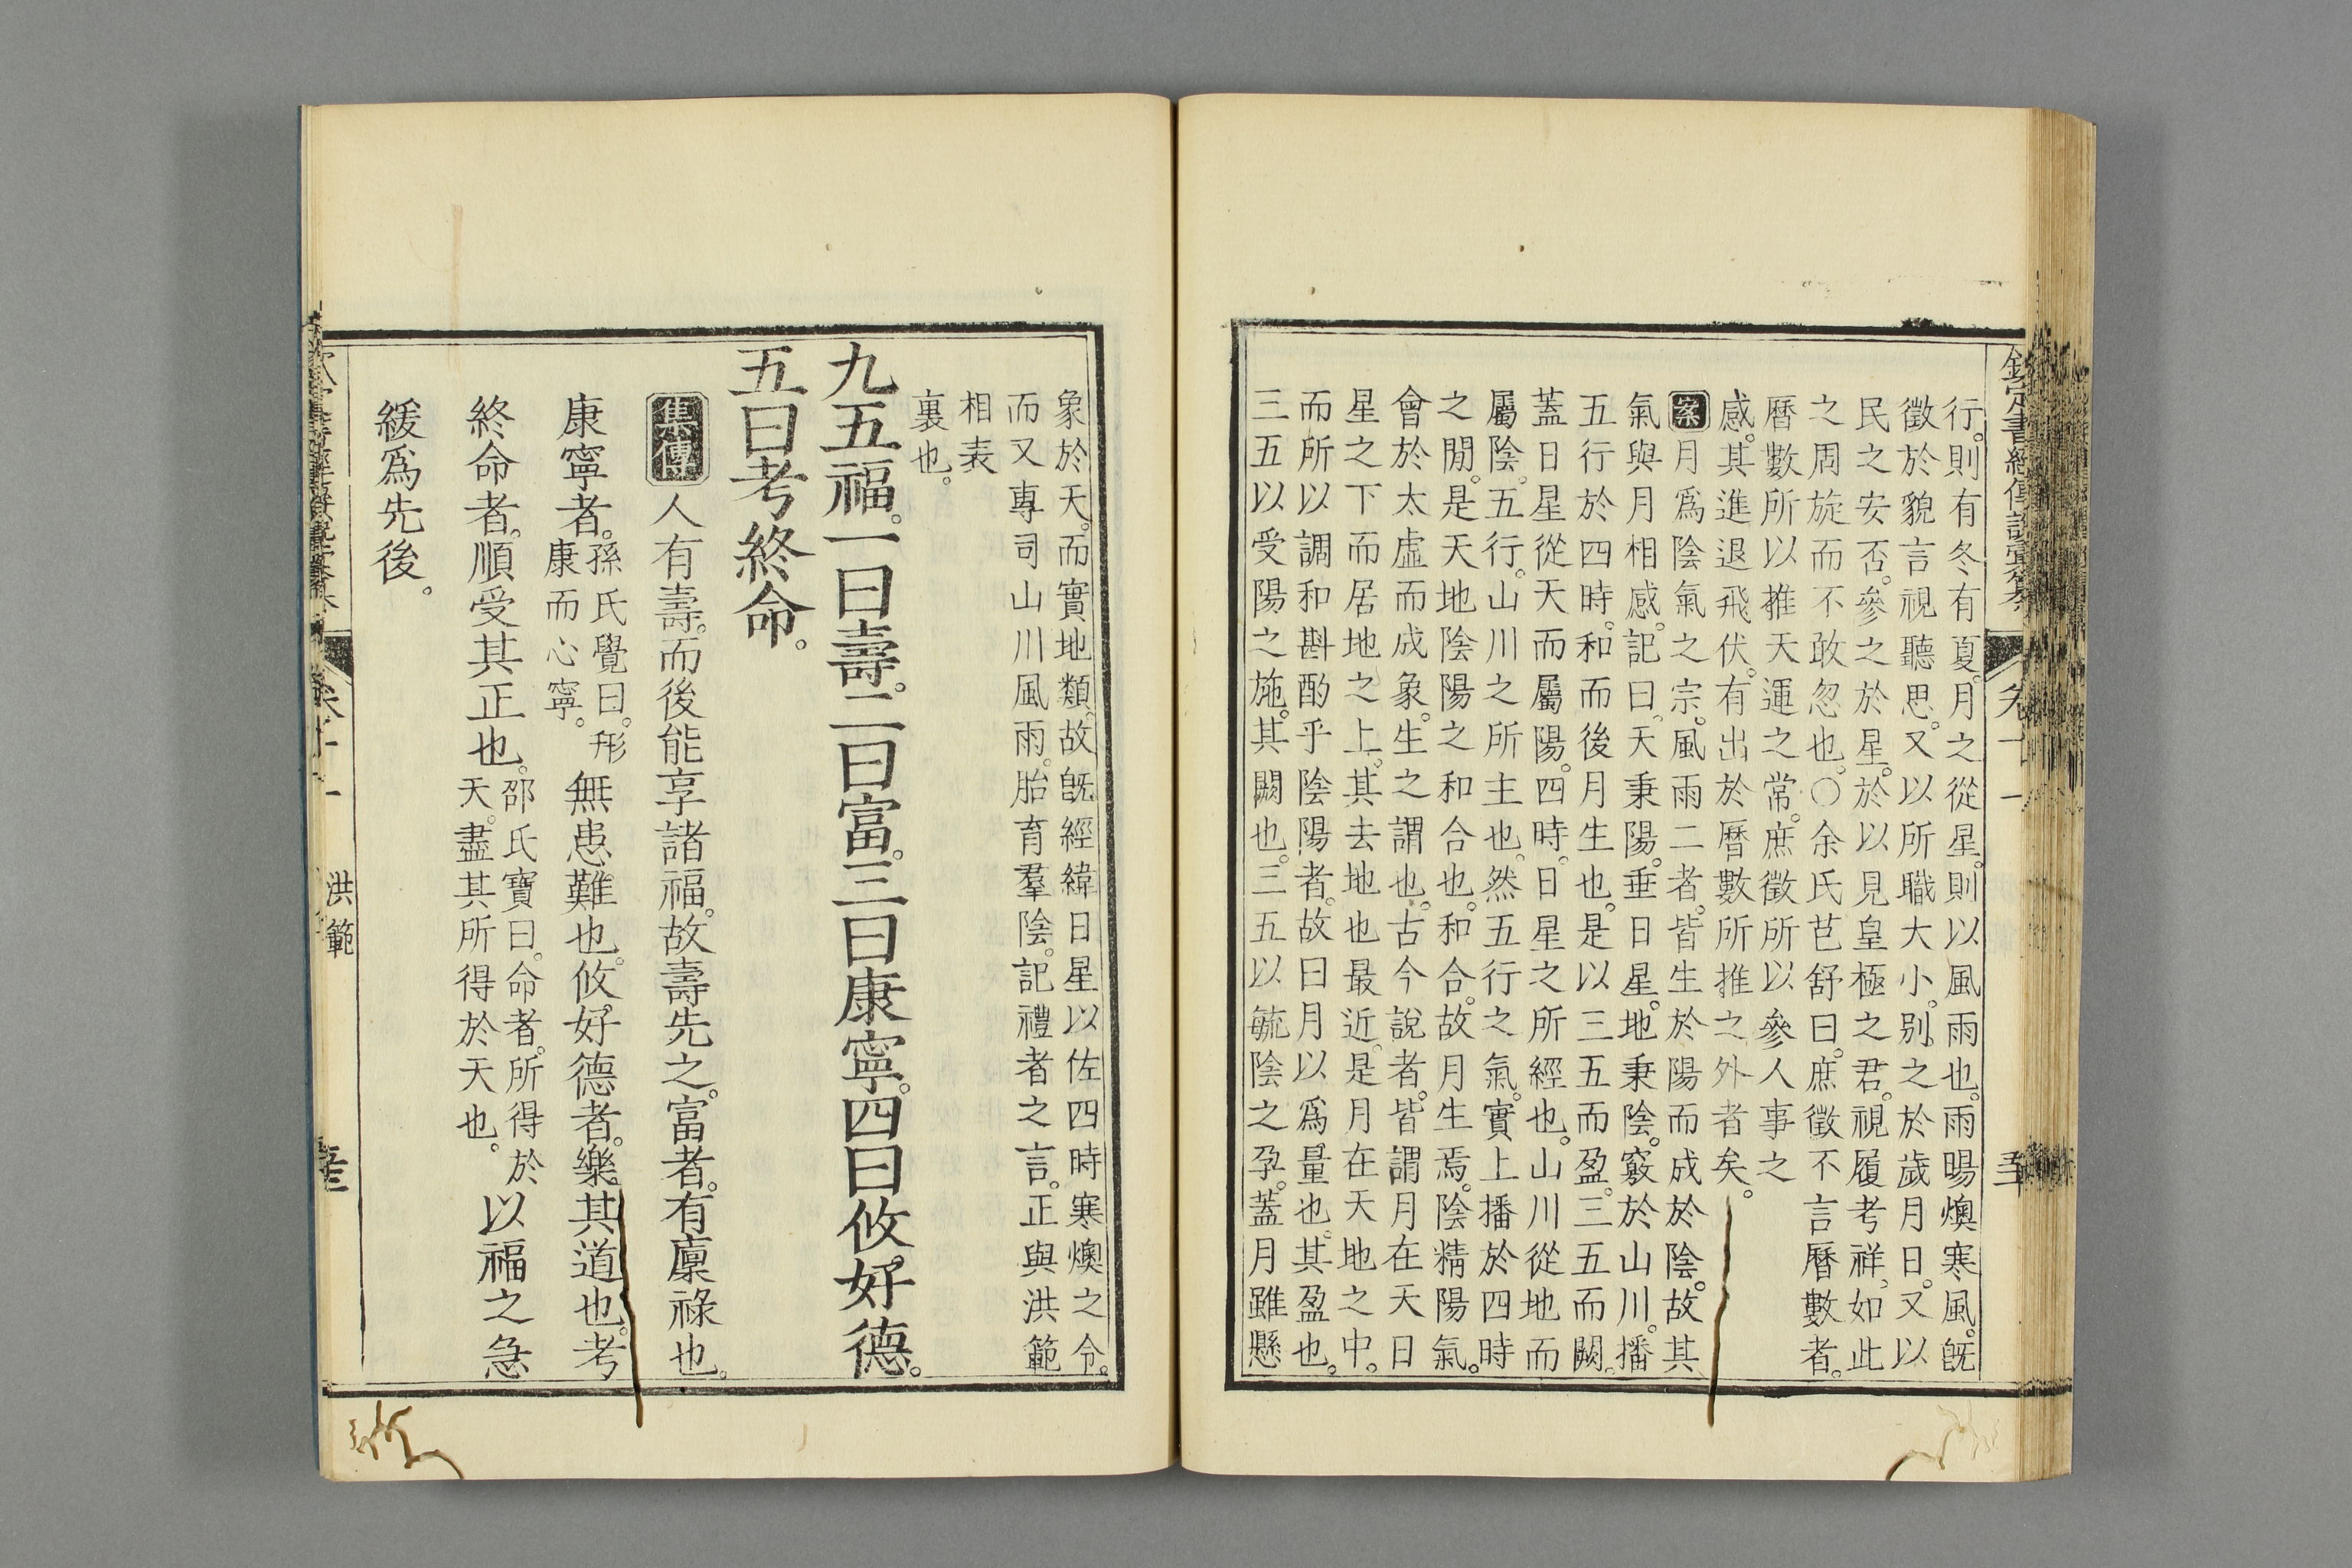 行。則有冬有夏。月之從星。則以風雨也。雨暘燠寒風。旣
徵於貌言視聽思。又以所職大小。別之於歲月日。又以
民之安否。參之於星。於以見皇極之君。視履考祥。如此
之周旋而不敢忽也。○余氏芑舒曰。庶徵不言曆數者。
曆數所以推天運之常。庶徵所以參人事之
感。其進退飛伏。有出於曆數所推之外者矣。
案月爲陰氣之宗。風雨二者。皆生於陽而成於陰。故其
氣與月相感。記曰。天秉陽。垂日星。地秉陰。竅於山川。播
五行於四時。和而後月生也。是以三五而盈。三五而闕。
蓋日星從天而屬陽。四時。日星之所經也。山川從地而
屬陰。五行。山川之所主也。然五行之氣。實上播於四時
之閒。是天地陰陽之和合也。和合。故月生焉。陰精陽氣。
會於太虛而成象。生之謂也。古今說者。皆謂月在天日
星之下而居地之上。其去地也最近。是月在天地之中。
而所以調和斟酌乎陰陽者。故曰月以爲量也。其盈也。
三五以受陽之施。其闕也。三五以毓陰之孕。蓋月雖懸
象於天。而實地類。故旣經緯日星以佐四時寒燠之令。
而又專司山川風雨。胎育羣陰。記禮者之言。正與洪範
相表
裏也。
九五福。一曰壽。二曰富。三曰康寧。四曰攸好德。
五曰考終命。
集傳人有壽。而後能享諸福。故壽先之。富者。有廩祿也。
康寧者。孫氏覺曰。形康而心寧。無患難也。攸好德者。樂其道也。考
終命者。順受其正也。邵氏寶曰。命者。所得於天。盡其所得於天也。以福之急
緩爲先後。
洪範